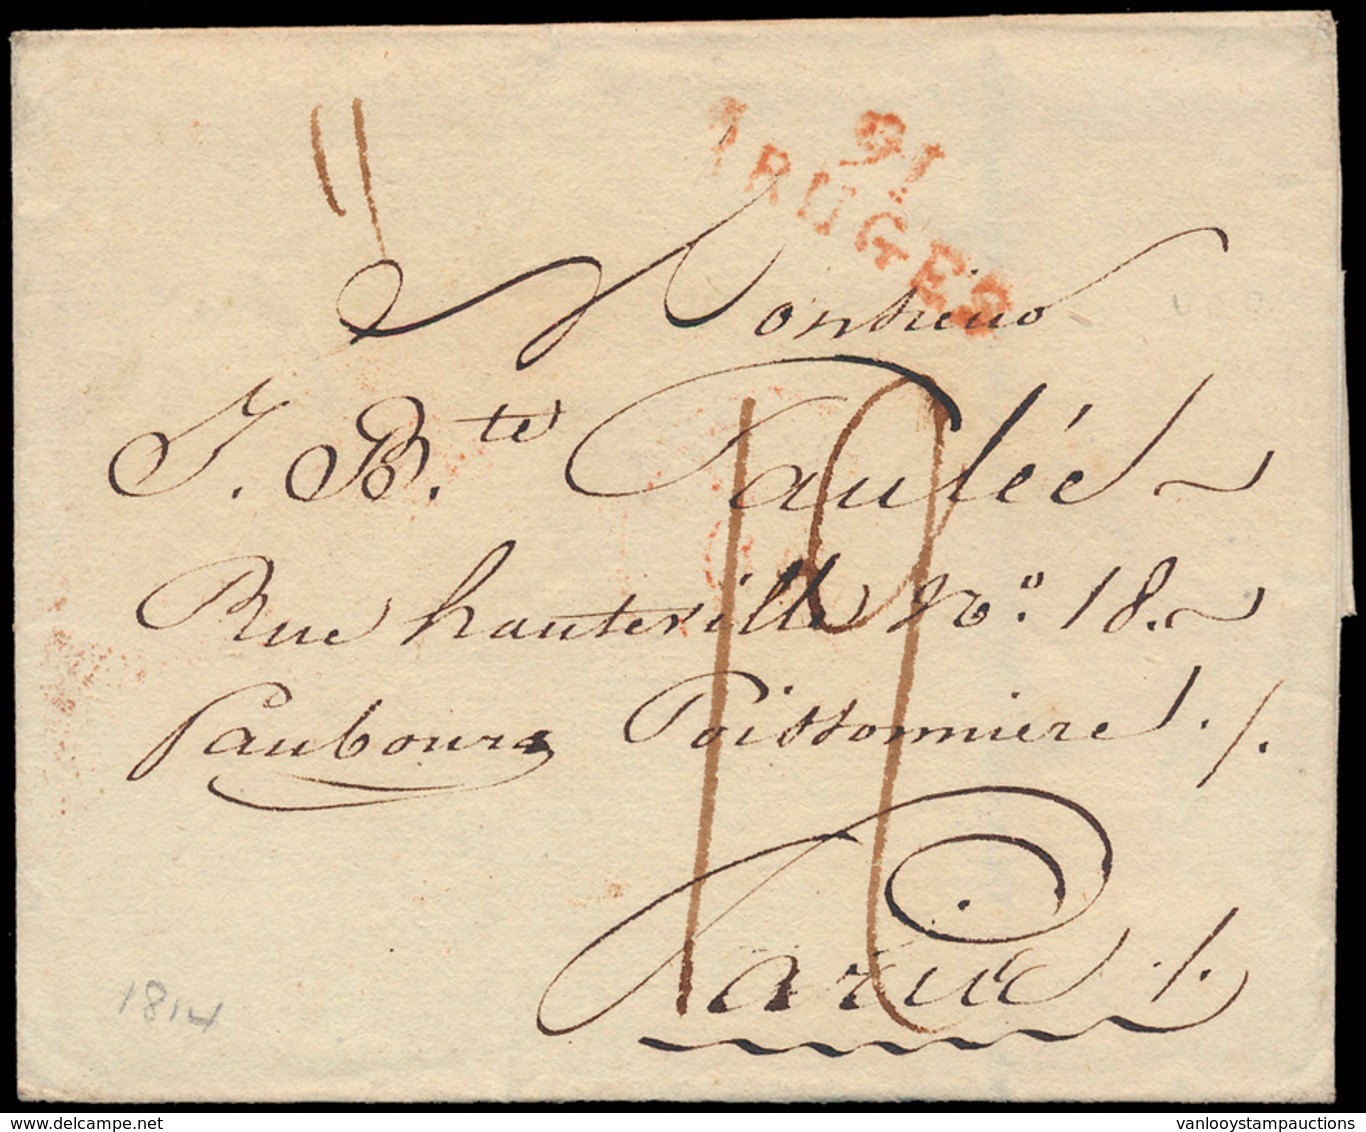 91
BRUGES
Monsieur
J. B.te Paulée
Rue hauteville No. 18.
Faubourg Poissonniere
Paris
1814
vanlooystampauctions